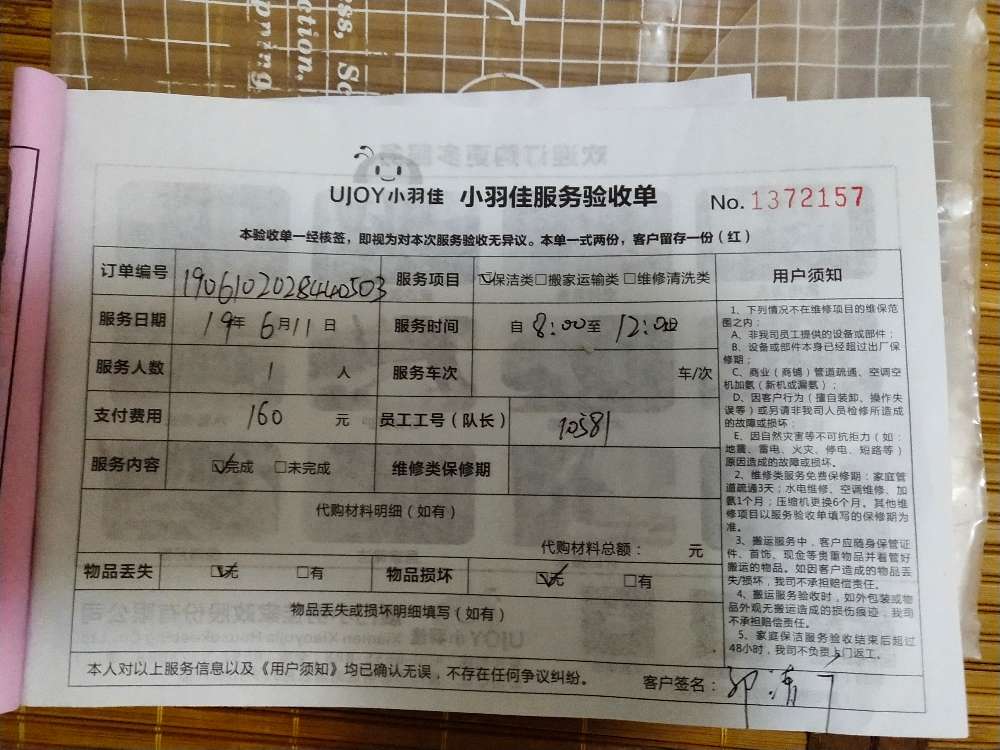 ess, So
ction,
pring
UJOY小羽佳 小羽佳服务验收单 No. 1372157
本验收单一经核签，即视为对本次服务验收无异议。本单一式两份，客户留存一份（红）
订单编号 190610202844440503 服务项目 ☑保洁类□搬家运输类 □维修清洗类
服务日期 19年 6月11日 服务时间 自 8:00至 12:00止
服务人数 1 人 服务车次 车/次
支付费用 160 元 员工工号（队长） 10581
服务内容 ☑完成 □未完成 维修类保修期
代购材料明细（如有）
代购材料总额： 元
物品丢失 ☑无 □有 物品损坏 ☑无 □有
物品丢失或损坏明细填写（如有）
本人对以上服务信息以及《用户须知》均已确认无误，不存在任何争议纠纷。 客户签名：
用户须知
1、下列情况不在维修项目的维保范
围之内：
A、非我司员工提供的设备或部件；
B、设备或部件本身已经超过出厂保
修期；
C、商业（商铺）管道疏通、空调空
机加氨（新机或漏氨）；
D、因客户行为（擅自装卸、操作失
误等）或另请非我司人员检修所造成
的故障或损坏；
E、因自然灾害等不可抗拒力（如：
地震、雷电、火灾、停电、短路等）
原因造成的故障或损坏。
2、维修类服务免费保修期：家庭管
道疏通3天；水电维修、空调维修、加
氨1个月；压缩机更换6个月。其他维
修项目以服务验收单填写的保修期为
准。
3、搬运服务中，客户应随身保管证
件、首饰、现金等贵重物品并看管好
搬运的物品。如因客户造成的物品丢
失/损坏，我司不承担赔偿责任。
4、搬运服务验收时，如外包装或物
品外观无搬运造成的损伤痕迹，我司
不承担赔偿责任。
5、家庭保洁服务验收结束后超过
48小时，我司不负责上门返工。